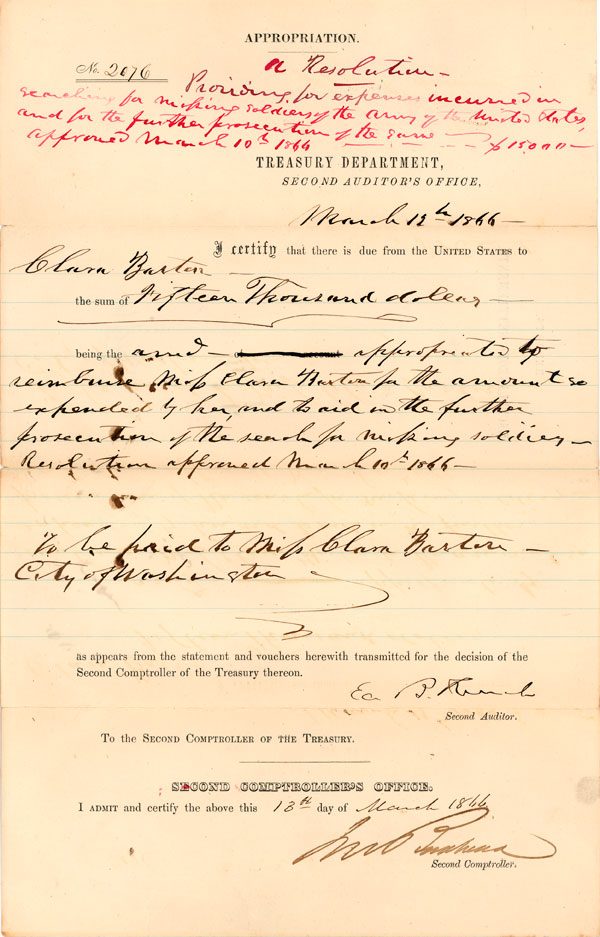 APPROPRIATION.
No. 2076
A Resolution—
Providing for expenses incurred in
searching for missing soldiers of the army of the United States,
and for the further prosecution of the same — $15000—
approved March 10th 1866
TREASURY DEPARTMENT,
SECOND AUDITOR'S OFFICE,
March 12th 1866—
I certify that there is due from the UNITED STATES to
Clara Barton—
the sum of Fifteen Thousand dollars—
being the amt— appropriated to
reimburse Miss Clara Barton for the amount so
expended by her, and to aid in the further
prosecution of the search for missing soldiers—
Resolution approved March 10th 1866—
To be paid to Miss Clara Barton—
City of Washington
as appears from the statement and vouchers herewith transmitted for the decision of the
Second Comptroller of the Treasury thereon.
B. French
Second Auditor.
To the SECOND COMPTROLLER OF THE TREASURY.
SECOND COMPTROLLER'S OFFICE.
I ADMIT and certify the above this 13th day of March 1866
Second Comptroller.